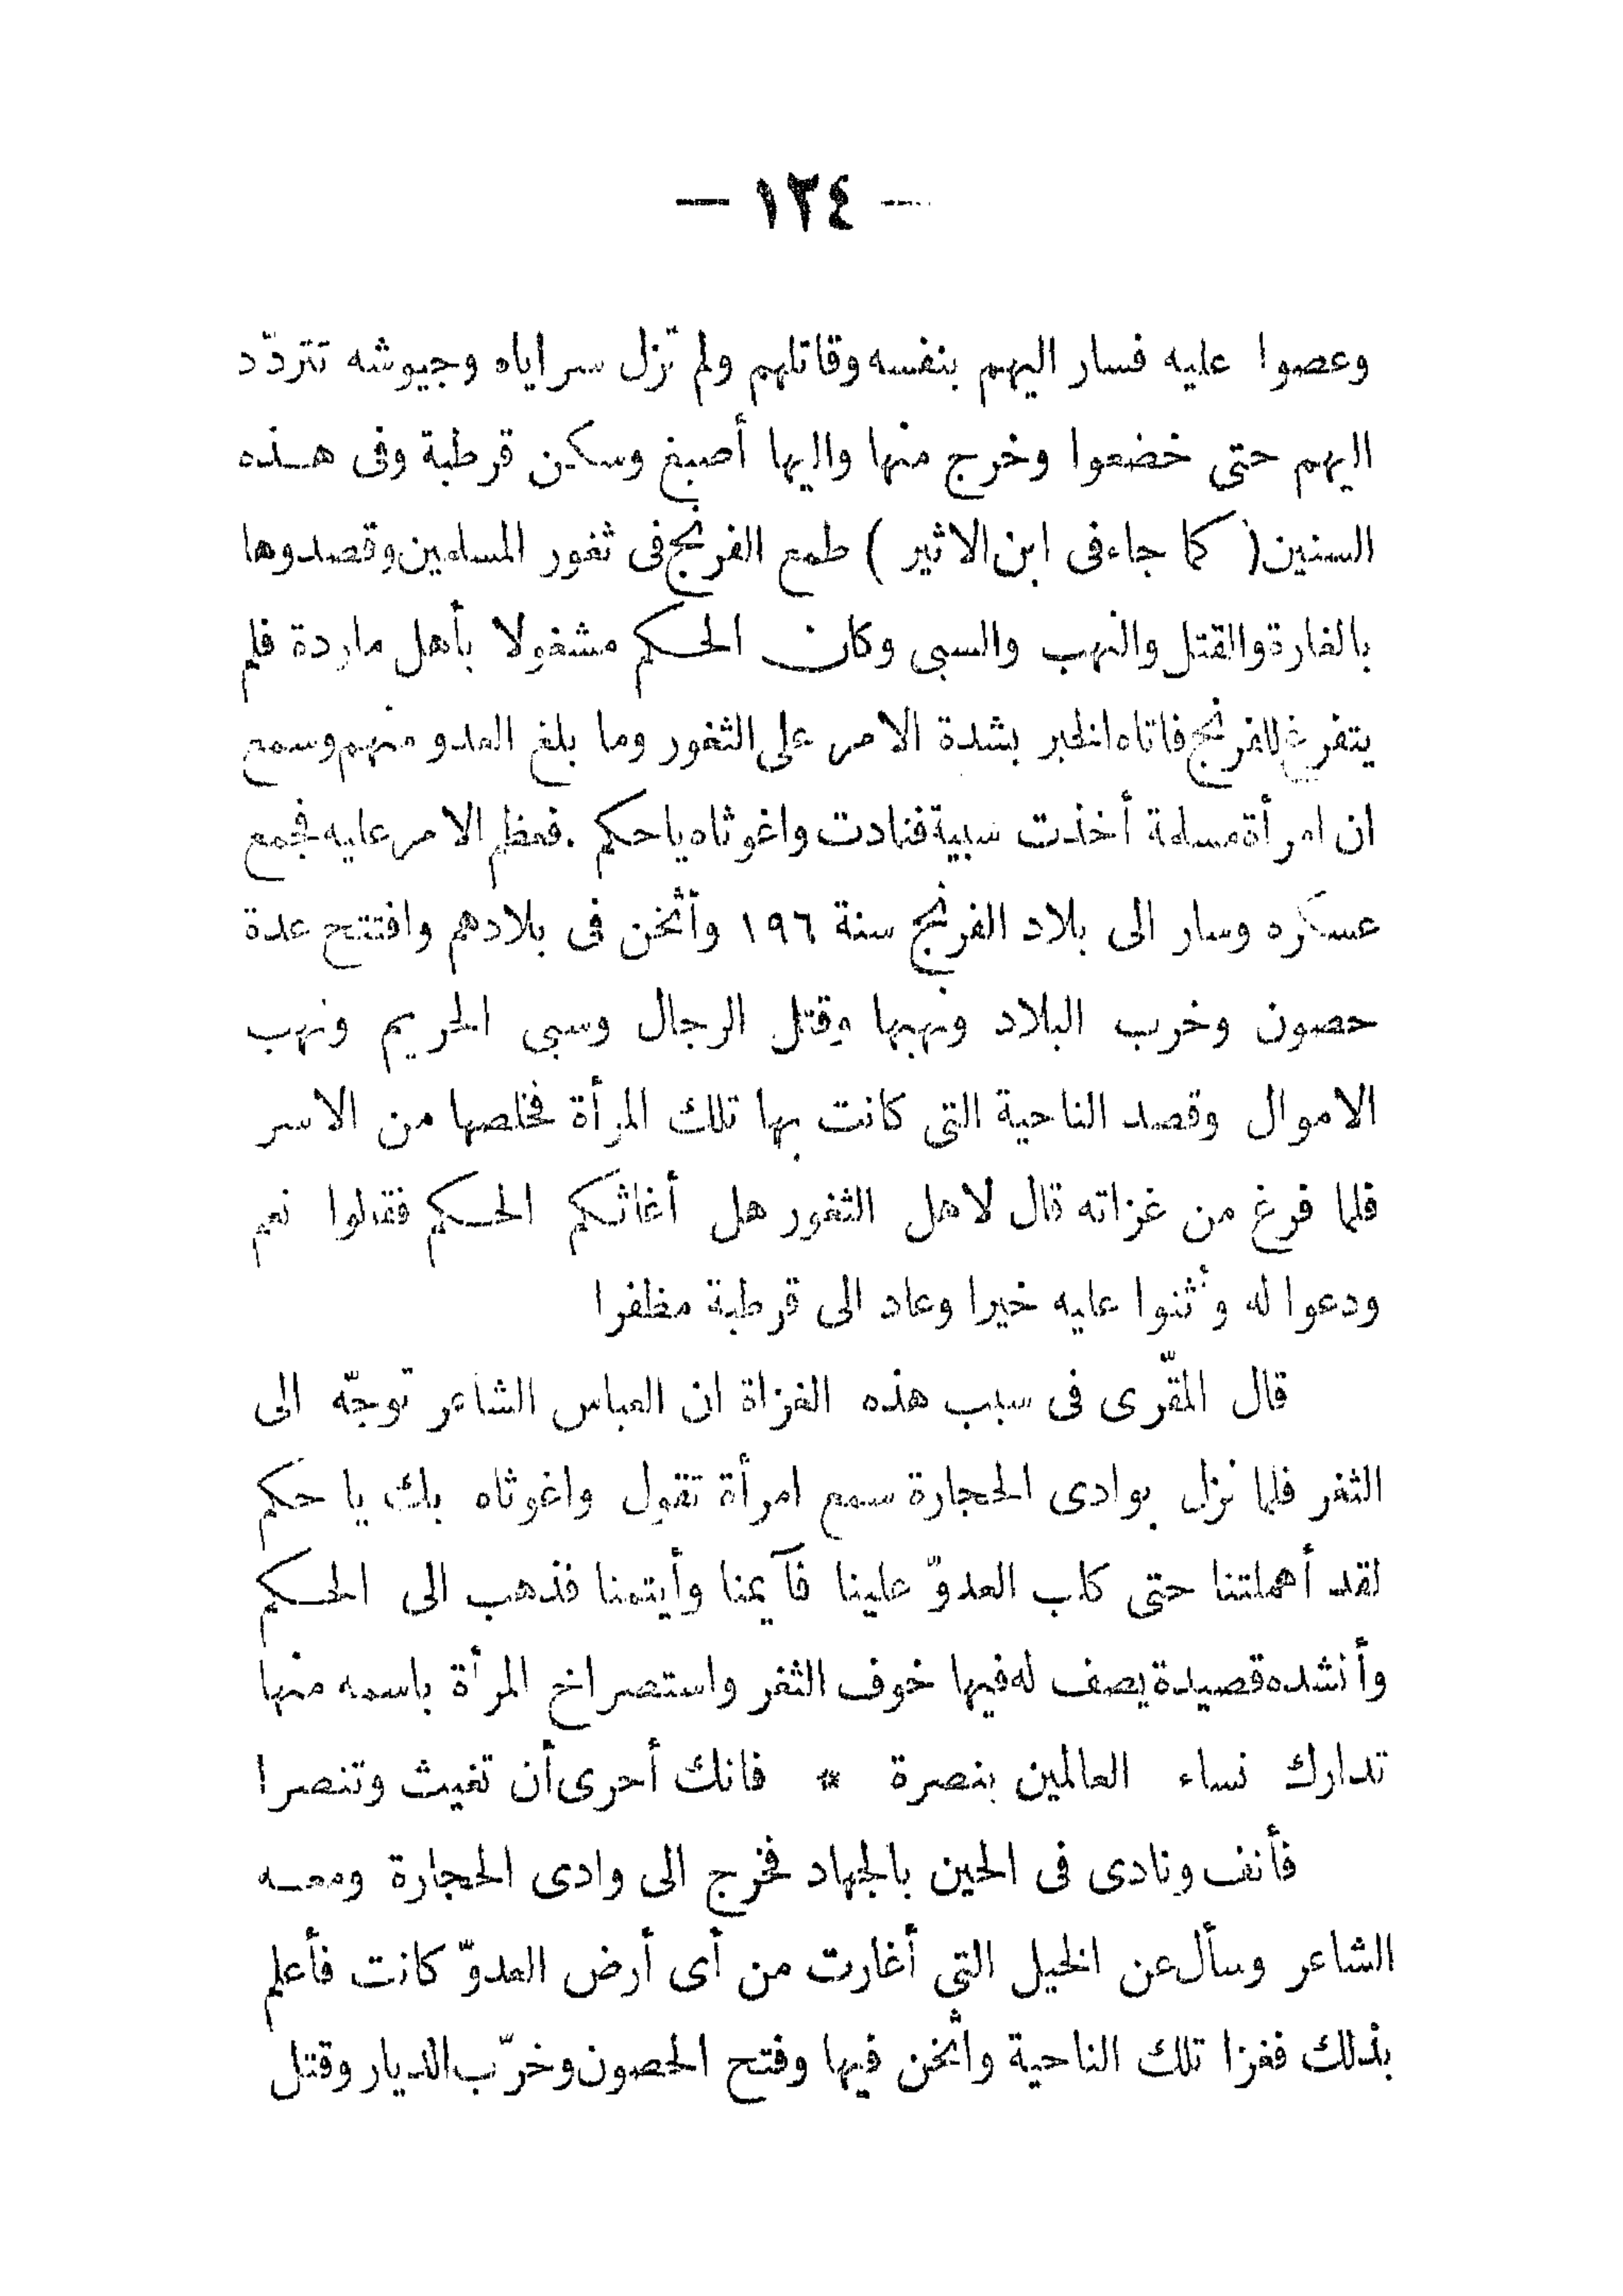 — ١٢٤ —
وعصوا عليه فسار اليهم بنفسه وقاتلهم ولم تزل سراياه وجيوشه تتردّد
اليهم حتى خضعوا وخرج منها واليها أصبغ وسكن قرطبة وفى هذه
السنين ( كما جاء فى ابن الاثير ) طمع الفرنج فى ثغور المسلمين وقصدوها
بالغارة والقتل والنهب والسبى وكان الحكم مشغولا بأهل ماردة فلم
يتفرغ للفرنج فاتاه الخبر بشدة الامر على الثغور وما بلغ العدو منهم وسمع
ان امرأة مسلمة أخذت سبية فنادت واغوثاه يا حكم . فعظم الامر عليه فجمع
عسكره وسار الى بلاد الفرنج سنة ١٩٦ وأثخن فى بلادهم وافتتح عدة
حصون وخرب البلاد ونهبها وقتل الرجال وسبى الحريم ونهب
الاموال وقصد الناحية التى كانت بها تلك المرأة فخلصها من الاسر
فلما فرغ من غزاته قال لاهل الثغور هل أغاثكم الحكم فقالوا نعم
ودعوا له وأثنوا عليه خيرا وعاد الى قرطبة مظفرا
قال المقّرى فى سبب هذه الغزاة ان العباس الشاعر توجّه الى
الثغر فلما نزل بوادى الحجارة سمع امرأة تقول واغوثاه بك يا حكم
لقد أهملتنا حتى كلب العدوّ علينا فآيمنا وأيتمنا فذهب الى الحكم
وأنشده قصيدة يصف له فيها خوف الثغر واستصراخ المرأة باسمه منها
تدارك نساء العالمين بنصرة * فانك أحرى أن تغيث وتنصرا
فأنف ونادى فى الحين بالجهاد فخرج الى وادى الحجارة ومعه
الشاعر وسأل عن الخيل التى أغارت من أى أرض العدوّ كانت فأعلم
بذلك فغزا تلك الناحية وأثخن فيها وفتح الحصون وخرّب الديار وقتل